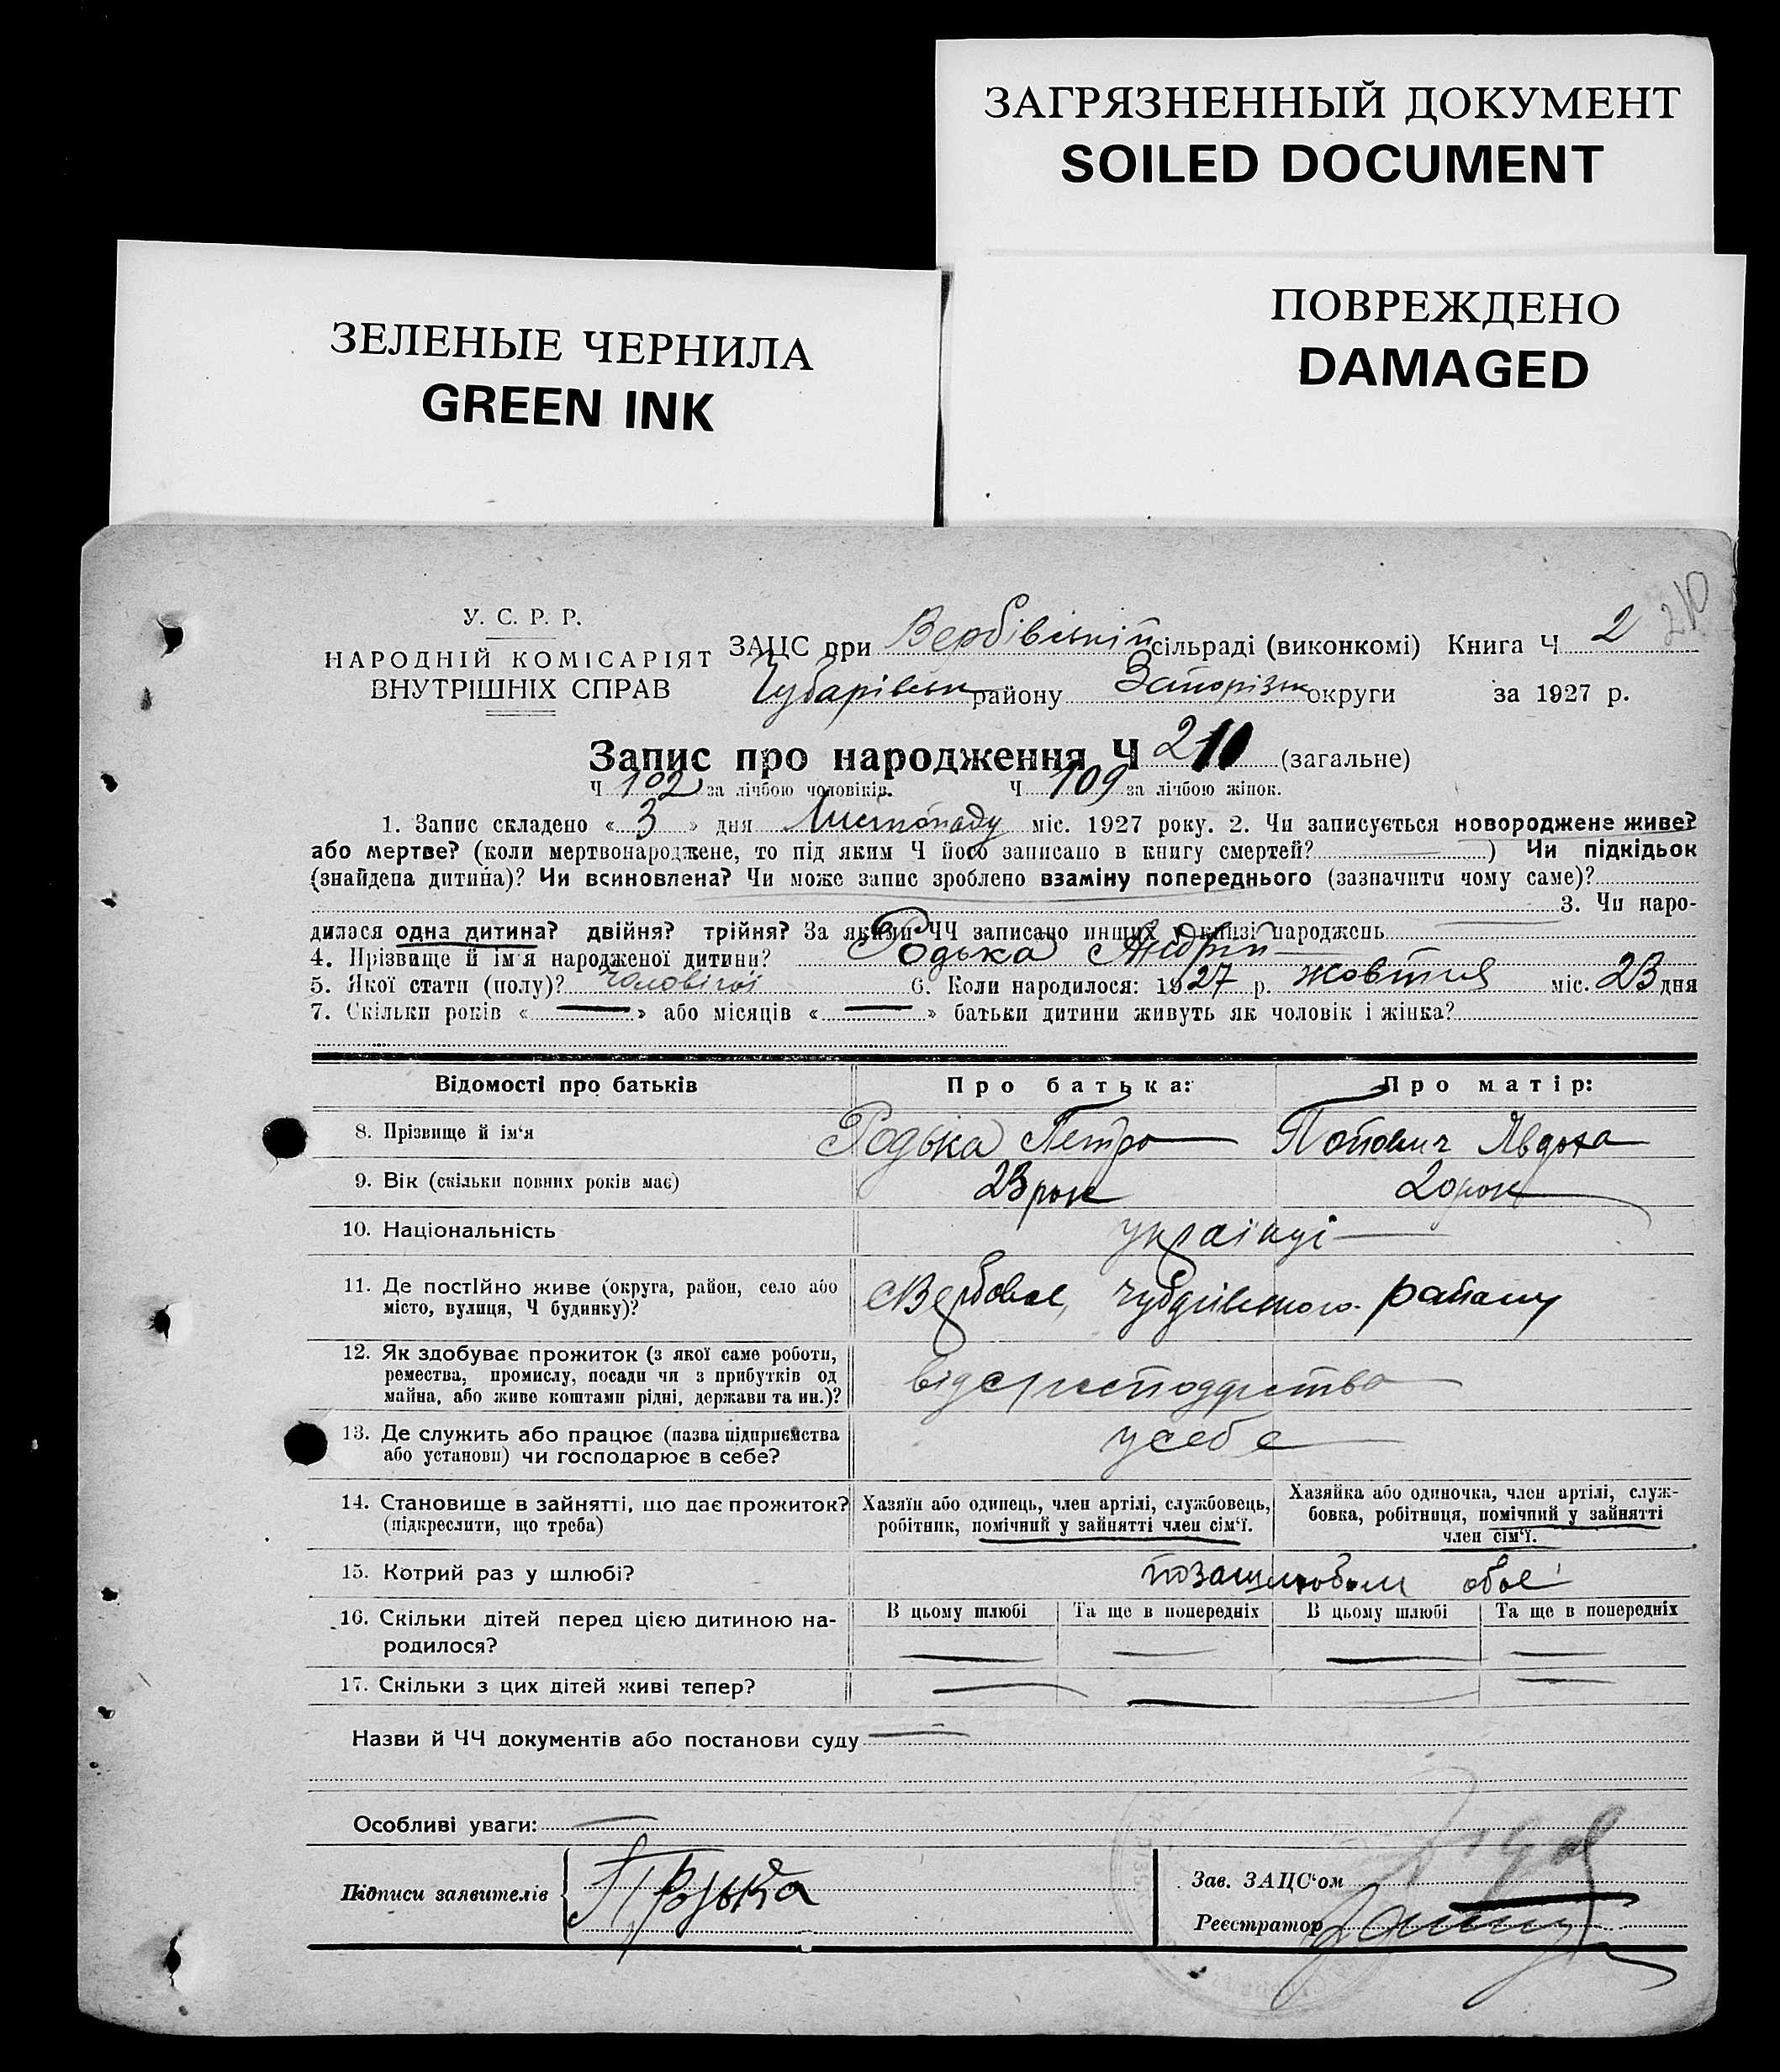 ЗАГРЯЗНЕННЫЙ ДОКУМЕНТ
SOILED DOCUMENT
ЗЕЛЕНЫЕ ЧЕРНИЛА
GREEN INK
ПОВРЕЖДЕНО
DAMAGED
210
У. С. Р. Р.
НАРОДНІЙ КОМІСАРІЯТ
ВНУТРІШНІХ СПРАВ
ЗАЦС при Вербівській сільраді (виконкомі) Книга Ч 2
Чубарівськ району Запорізьк округи за 1927 р.
Запис про народження Ч 210 (загальне)
Ч 102 за лічбою чоловіків. Ч 109 за лічбою жінок.
1. Запис складено « 3 » дня Листопаду міс. 1927 року. 2. Чи записується новороджене живе?
або мертве? (коли мертвонароджене, то під яким Ч його записано в книгу смертей? ) Чи підкідьок
(знайдена дитина)? Чи всиновлена? Чи може запис зроблено взаміну попереднього (зазначити чому саме)?
3. Чи наро-
дилася одна дитина? двійня? трійня? За якими ЧЧ записано инших у книзі народжень
4. Прізвище й ім'я народженої дитини? Родька Андрій
5. Якої стати (полу)? чоловічої 6. Коли народилося: 1927 р. жовтня міс. 23 дня
7. Скільки років « — » або місяців « — » батьки дитини живуть як чоловік і жінка?
Відомості про батьків Про батька: Про матір:
8. Прізвище й ім'я Родька Петро Попович Явдоха
9. Вік (скільки повних років має) 23 рок 20 рок
10. Національність українці
11. Де постійно живе (округа, район, село або
місто, вулиця, Ч будинку)? с Вербове, Чубарівського району
12. Як здобуває прожиток (з якої саме роботи,
ремества, промислу, посади чи з прибутків од
майна, або живе коштами рідні, держави та ин.)? від с господарства
13. Де служить або працює (назва підприємства
або установи) чи господарює в себе? у себе
14. Становище в зайнятті, що дає прожиток?
(підкреслити, що треба)
Хазяїн або одинець, член артілі, службовець,
робітник, помічний у зайнятті член сім'ї.
Хазяйка або одиночка, член артілі, служ-
бовка, робітниця, помічний у зайнятті
член сім'ї.
15. Котрий раз у шлюбі? позашлюбом обоє
16. Скільки дітей перед цією дитиною на-
родилося?
В цьому шлюбі Та ще в попередніх В цьому шлюбі Та ще в попередніх
17. Скільки з цих дітей живі тепер?
Назви й ЧЧ документів або постанови суду —
Особливі уваги: —
Підписи заявителів П Родька
Зав. ЗАЦС'ом
Реєстратор